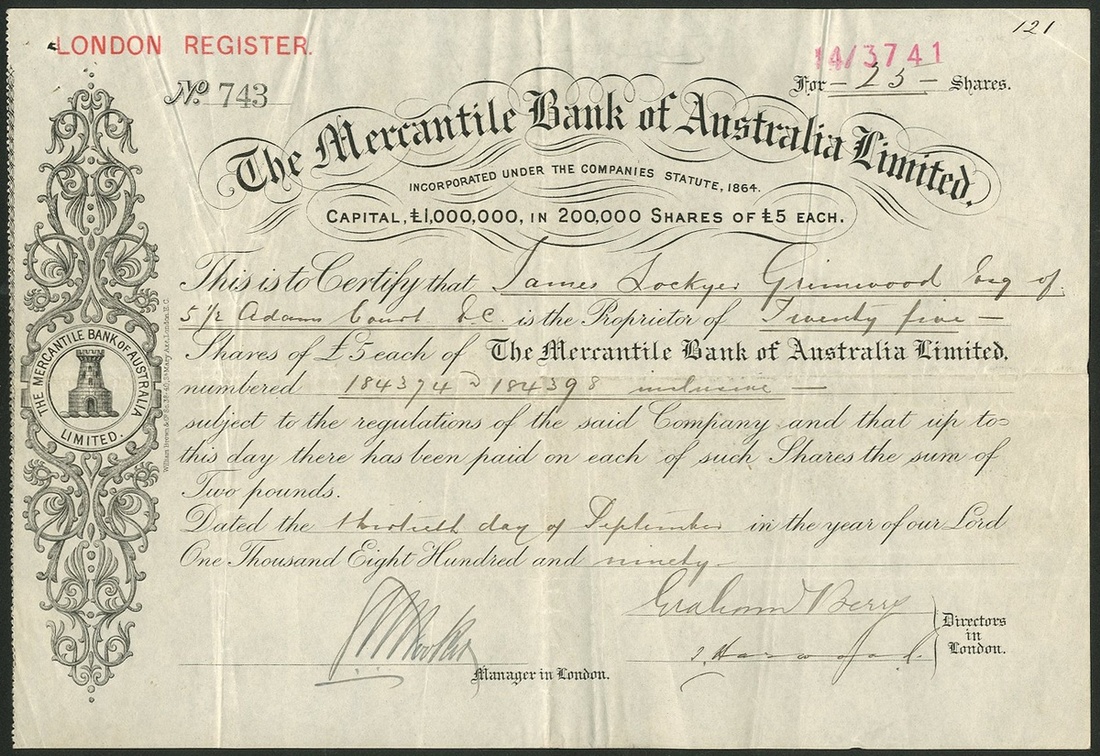 121
LONDON REGISTER.
14/3741
No. 743
For – 25 – Shares.
The Mercantile Bank of Australia Limited.
INCORPORATED UNDER THE COMPANIES STATUTE, 1864.
CAPITAL, £1,000,000, IN 200,000 SHARES OF £5 EACH.
This is to Certify that James Lockyer Grimwood Esq of
5½ Adams Court E.C. is the Proprietor of Twenty five –
Shares of £5 each of The Mercantile Bank of Australia Limited,
numbered 184374 @ 184398 inclusive –
subject to the regulations of the said Company and that up to
this day there has been paid on each of such Shares the sum of
Two pounds.
Dated the thirtieth day of September in the year of our Lord
One Thousand Eight Hundred and ninety
Graham Berry
Directors
in
London.
Manager in London.
THE MERCANTILE BANK OF AUSTRALIA
LIMITED.